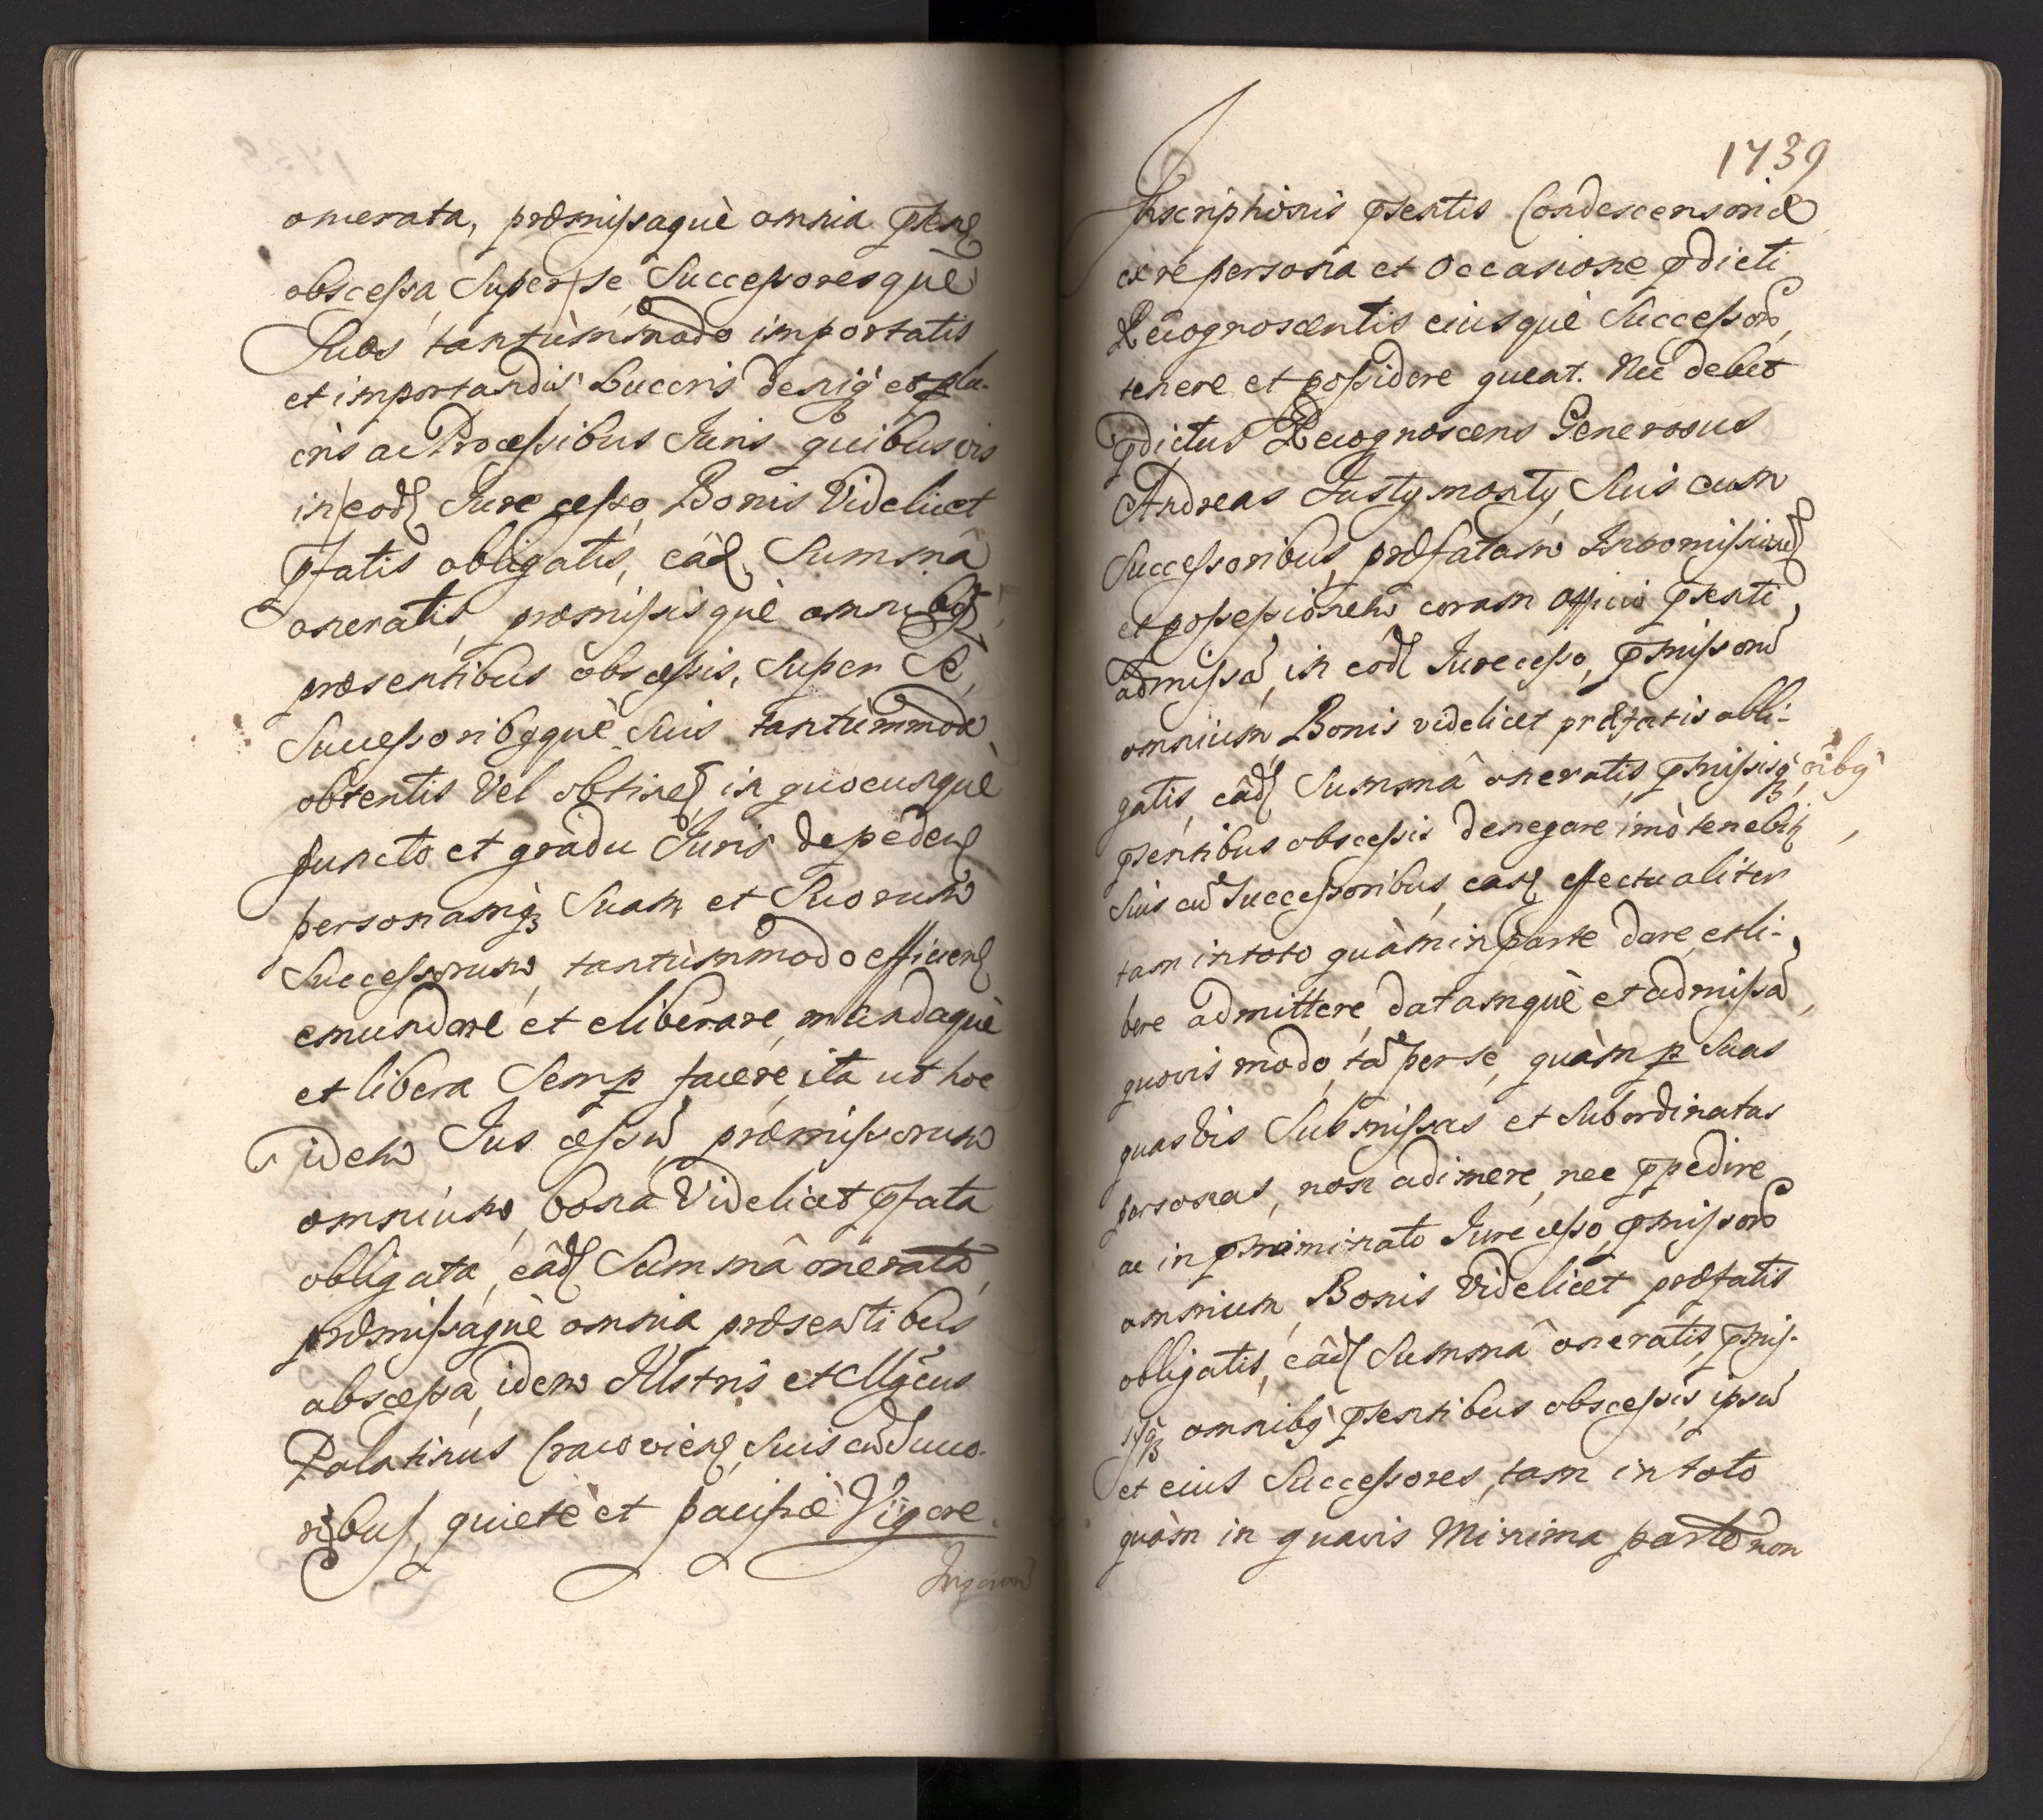 onerata, præmissaquè omnia pñtib
obscessa, Super se Successoresquè
Suos tantùmmodo importatis
et importandis Lucris deniq et lu-
cris ac Processibus Juris quibusvis
in eod Jure cesso, Bonis Videlicet
pfatis obligatis, eâd Summâ
oneratis, præmissisquè omnibg
præsentibus obscessis, Super Se,
Successoribgquè Suis tantùmmodo
obtentis Vel obtinen in quocunquè
puncto et gradu Juris depēden
personamq Suam et Suorum
Successorum, tantùmmodo efficien
emundare et eliberare, mundaquè
et libera Semp facere, ita ut hoc
idem Jus cessū, præmissorum
omnium, bona Videlicet pfata
obligata, eâd Summâ onerata,
præmissaquè omnia præsentibus
obscessa, idem Illstris et Mgcus
Palatinus Cracovien, Suis cū Succo-
ribus, quietè et pacificè Vigore
1739
Inscriptionis psentis Condescensoriæ
ex re persona et Occasione pdicti
Recognoscentis eiusquè Successorū,
tenere et possidere queat. Nec debet
pdictus Recognoscens Generosus
Andreas Justymonty, Suis cum
Successoribus, præfatam Intromissionē
et possessionem coram Officio psenti
admissā, in eod Jure cesso, pmissorū
omnium, Bonis videlicet præfatis obli-
gatis, eâd Summâ oneratis, pmissisq oībg
psentibus obscessis denegare, imò tenebit
Suis cū Successoribus, eand effectualiter
tam in toto quàm in parte dare, et li-
bere admittere, datamquè et admissā,
quovis modo, tā per se, quàm p Suas
quasvis Submissas et Subordinatas
personas, non adimere, nec ppedire
ac in pnominato Jure cesso, pmissorū
omnium, Bonis Videlicet præfatis
obligatis, eâd Summâ oneratis, pmis-
sisq omnibg psentibus obscessis, ipsū
et eius Successores, tam in toto
quàm in quavis Minima parte non